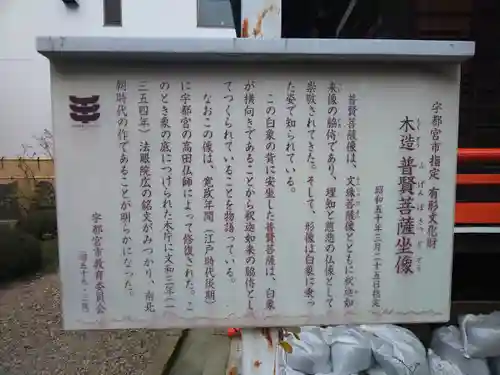 宇都宮市指定 有形文化財
もくぞう ふげんぼさつざぞう
木造 普賢菩薩坐像
昭和五十年三月二十五日指定
普賢菩薩像は、文殊菩薩像とともに釈迦如
来像の脇侍であり、理知と慈悲の仏像として
崇敬されてきた。そして、形像は白象に乗っ
た姿で知られている。
この白象の背に安坐した普賢菩薩は、白象
が横向きであることから釈迦如来の脇侍とし
てつくられていることを物語っている。
なおこの像は、寛政年間(江戸時代後期)
に宇都宮の高田仏師によって修復された。こ
のとき象の底につけられた木片に文和三年(一
三五四年)法眼院広の銘文がみつかり、南北
朝時代の作であることが明らかになった。
宇都宮市教育委員会